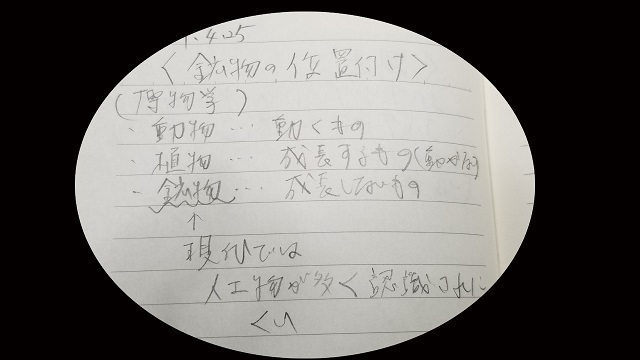 1.4.25
<鉱物の位置付け>
(博物学)
・動物… 動くもの
・植物… 成長するもの(動かない)
・鉱物… 成長しないもの
↑
現代では
人工物が多く認識されに
くい